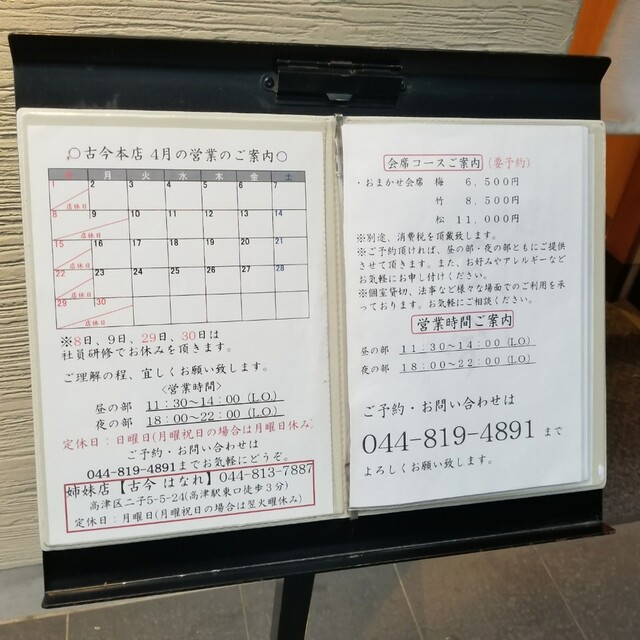 ○古今本店 4月の営業のご案内○
日 月 火 水 木 金 土
1 2 3 4 5 6 7
店休日
8 9 10 11 12 13 14
店休日
15 16 17 18 19 20 21
店休日
22 23 24 25 26 27 28
店休日
29 30
店休日
※8日、9日、29日、30日は
社員研修でお休みを頂きます。
ご理解の程、宜しくお願い致します。
〈営業時間〉
昼の部 11:30~14:00(LO)
夜の部 18:00~22:00(LO)
定休日:日曜日(月曜祝日の場合は月曜日休み)
ご予約・お問い合わせは
044-819-4891までお気軽にどうぞ。
姉妹店【古今 はなれ】044-813-7887
高津区二子5-5-24(高津駅東口徒歩3分)
定休日:月曜日(月曜祝日の場合は翌火曜休み)
会席コースご案内(要予約)
・おまかせ会席 梅 6,500円
竹 8,500円
松 11,000円
※別途、消費税を頂戴致します。
※ご予約頂ければ、昼の部・夜の部ともにご提供
させて頂きます。また、お好みやアレルギーなど
お気軽にお申し付けください。
※個室貸切、法事など様々な場面でのご利用を承
っております。お気軽にご相談ください。
営業時間ご案内
昼の部 11:30~14:00(LO)
夜の部 18:00~22:00(LO)
ご予約・お問い合わせは
044-819-4891 まで
よろしくお願い致します。